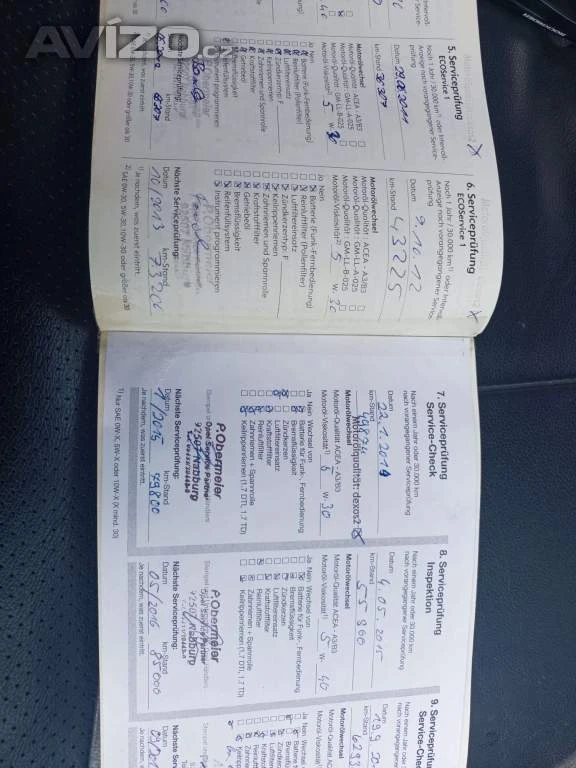 Avízo.cz
5. Serviceprüfung
ECOService
Nach 1 Jahr / 30.000 km¹⁾ oder Intervall-
Anzeige nach vorangegangener Service-
prüfung
Datum
km-Stand 30307
Motorölwechsel
Motoröl-Qualität : ACEA - A3/B3
Motoröl-Qualität : GM-LL-A-025
Motoröl-Qualität : GM-LL-B-025
Motoröl-Viskosität²⁾ 5 W- 30
Ja Nein
Batterie (Funk-Fernbedienung)
Reinluftfilter (Pollenfilter)
Luftfiltereinsatz
Zündkerzentyp: F
Keilrippenriemen
Zahnriemen und Spannrolle
Kraftstofffilter
Getriebeöl
Bremsflüssigkeit
Reifenfüllsystem
Instrument programmieren
Nächste Serviceprüfung:
6. Serviceprüfung
ECOService
Nach 1 Jahr / 30.000 km¹⁾ oder Intervall-
Anzeige nach vorangegangener Service-
prüfung
Datum 9.10.12
km-Stand 43225
Motorölwechsel
Motoröl-Qualität : ACEA - A3/B3
Motoröl-Qualität : GM-LL-A-025
Motoröl-Qualität : GM-LL-B-025
Motoröl-Viskosität²⁾ 5 W- 30
Ja Nein
Batterie (Funk-Fernbedienung)
Reinluftfilter (Pollenfilter)
Luftfiltereinsatz
Zündkerzentyp: F
Keilrippenriemen
Zahnriemen und Spannrolle
Kraftstofffilter
Getriebeöl
Bremsflüssigkeit
Reifenfüllsystem
Instrument programmieren
Nächste Serviceprüfung:
Datum km-Stand
10/2013 73200
1) Je nachdem, was zuerst eintritt.
2) SAE 0W-30, 5W-30, 10W-30 oder größer als 30
7. Serviceprüfung
Service-Check
Nach einem Jahr oder 30.000 km
nach vorangegangener Serviceprüfung
Datum 22.1.2014
km-Stand 49874
Motoröl­qualität: dexos2
Motorölwechsel
Motoröl-Qualität ACEA - A3/B3
Motoröl-Viskosität¹⁾ 5 W- 30
Ja Nein Wechsel von
Batterie für Funk-, Fernbedienung
Bremsflüssigkeit
Zündkerzen
Luftfiltereinsatz
Kraftstofffilter
Reinluftfilter
Zahnriemen + Spannrolle
Keilrippenriemen (1,7 DTI, 1,7 TD)
P. Obermeier
Opel Service Partner
Nächste Serviceprüfung:
Datum km-Stand
/2015 79800
Je nachdem, was zuerst eintritt.
1) Nur SAE 0W-X, 5W-X oder 10W-X (X mind. 30)
8. Serviceprüfung
Inspektion
Nach einem Jahr oder 30.000 km
nach vorangegangener Serviceprüfung
Datum 4.05.2015
km-Stand 55860
Motorölwechsel
Motoröl-Qualität ACEA - A3/B3
Motoröl-Viskosität¹⁾ 5 W- 40
Ja Nein Wechsel von
Batterie für Funk-, Fernbedienung
Bremsflüssigkeit
Zündkerzen
Luftfiltereinsatz
Kraftstofffilter
Reinluftfilter
Zahnriemen + Spannrolle
Keilrippenriemen (1,7 DTI, 1,7 TD)
P. Obermeier
Opel Service Partner
Nächste Serviceprüfung:
Datum km-Stand
05/2016 85000
Je nachdem, was zuerst eintritt.
9. Serviceprüfu
Service-Che
Nach einem Jahr oder
nach vorangegangener
Datum
km-Stand
Motorölwechsel
Motoröl-Qualität AC
Motoröl-Viskosität¹⁾
Ja Nein Wechsel
Nächste Servi
Datum
Je nachdem, w